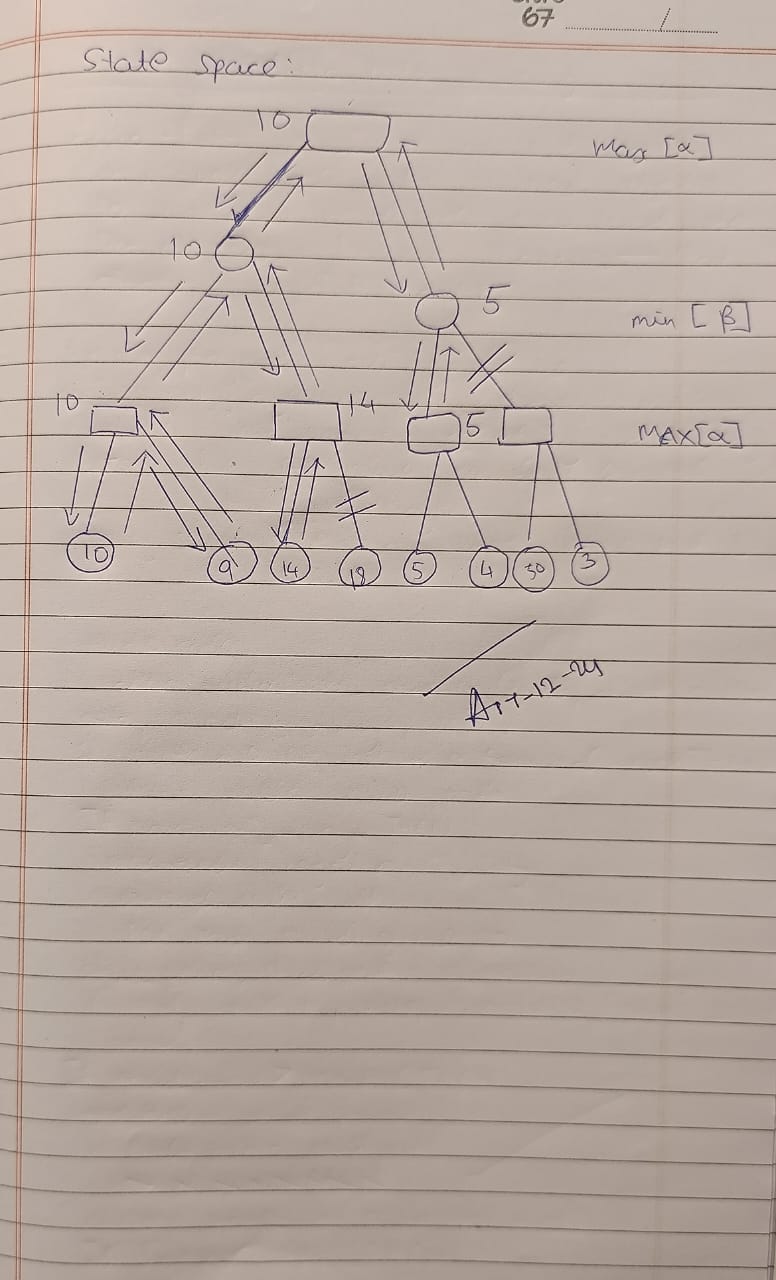 67 /
State space:
10
Max [α]
10
5
min [β]
10
14
5
MAX[α]
10 9 14 18 5 4 50 3